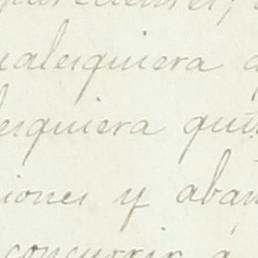 ualesquiera
esquiera qui
iones y aban
concurrir á